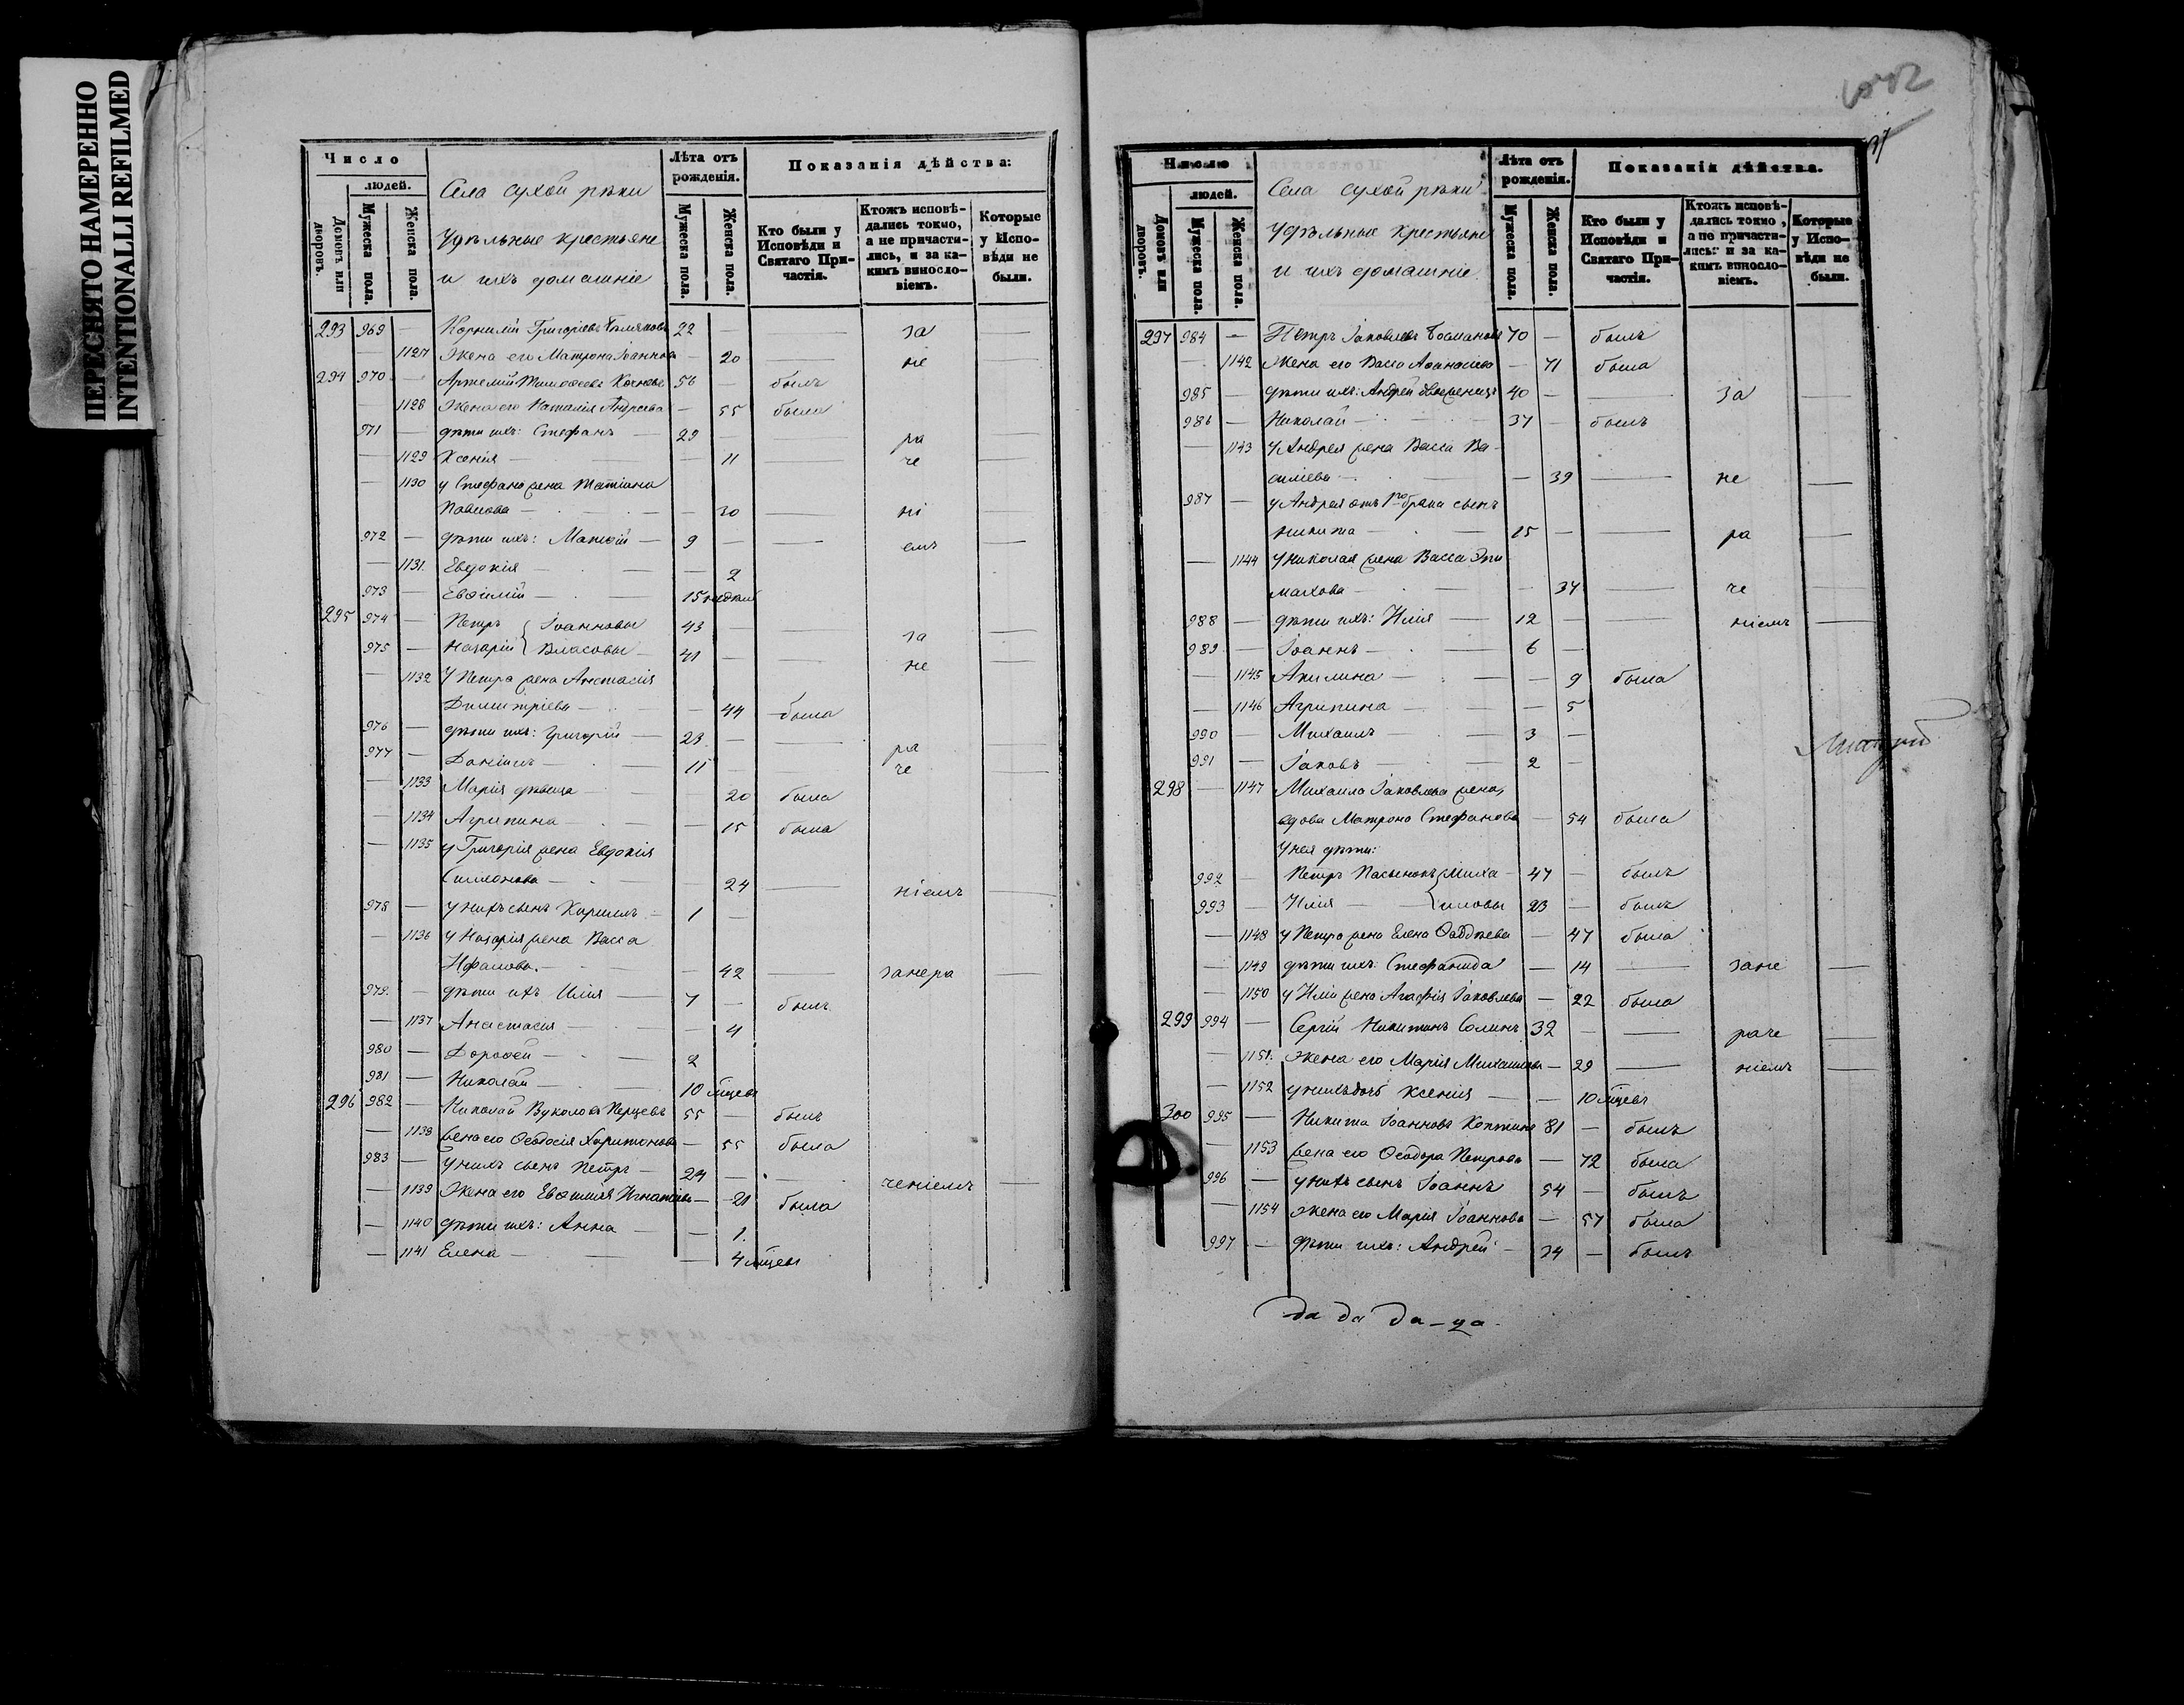 ПЕРЕСНЯТО НАМЕРЕННО
INTENTIONALLI REFILMED
Число
людей.
Домовъ или дворовъ.
Мужеска пола.
Женска пола.
Села Сухой рѣки
Удѣльные крестьяне
и ихъ домашніе
Лѣта отъ рожденія.
Мужеска пола.
Женска пола.
Показанія дѣйства:
Кто были у Исповѣди и Святаго Причастія.
Ктожъ исповѣдались токмо, а не причастились, и за какимъ винословіемъ.
Которые у Исповѣди не были.
293 969 — Корнилій Григоріевъ 22 — — за —
— 1127 Жена его Матрона Іоаннова — 20 — не —
294 970 — Артемій 56 — былъ
— 1128 Жена его Наталія Андреева — 55 была
971 — дѣти ихъ: Стефанъ — 29 — — ра —
— 1129 Ксенія — — 11 — че —
— 1130 у Стефана жена Татіана
Павлова — — 30 — ні —
972 — дѣти ихъ: — 9 — — емъ —
— 1131. Евдокія — — 2
973 — Евѳимій — 15 недѣль
295 974 — Петръ { Іоанновы 43 — — за —
975 — Назарій { Власовы 41 — — не —
— 1132 У Петра жена Анастасія
Димитріева — — 44 была
976 — дѣти ихъ: Григорій — 23 — — ра —
977 — Даніилъ — 11 — — че —
— 1133 Марія дѣвица — 20 была
— 1134 Агрипина — — 15 была
— 1135 у Григорія жена Евдокія
Симеонова — — 24 — ніемъ —
978 — у нихъ сынъ Кириллъ — 1 —
— 1136 у Назарія жена Васса
— 42 — занера —
979. — дѣти ихъ Илія — 7 — былъ
— 1137 Анастасія — — 4
980 — Дороѳей — 2
981 — Николай — 10 мѣсцевъ
296 982 — Николай Вуколовъ 55 — былъ
— 1138 жена его Ѳеодосія Харитонова — 55 была
983 — у нихъ сынъ Петръ — 24 — — ченіемъ —
— 1139 Жена его Евѳимія Игнатіева — 21 была
— 1140 дѣти ихъ: Анна — — 1.
— 1141 Елена — — 4 мѣсцевъ
Число
людей.
Домовъ или дворовъ.
Мужеска пола.
Женска пола.
Села Сухой рѣки
Удѣльные крестьяне
и ихъ домашніе
Лѣта отъ рожденія.
Мужеска пола.
Женска пола.
Показанія дѣйства.
Кто были у Исповѣди и Святаго Причастія.
Ктожъ исповѣдались токмо, а не причастились: и за какимъ винословіемъ.
Которые у Исповѣди не были.
297 984 — Петръ Іаковлевъ 70 — былъ
— 1142 Жена его Васса Аѳанасіева — 71 была
985 — дѣти ихъ: Андрей 40 — — за —
986 — Николай — 37 — былъ
— 1143 У Андрея жена Васса Ва-
силіева — — 39 — не —
987 — у Андрея отъ 1го брака сынъ
Никита — 15 — — ра —
— 1144 у Николая жена Васса Эпи
махова — — 34 — че —
988 — дѣти ихъ: Илія — 12 — — ніемъ —
989 — Іоаннъ — 6 —
— 1145 Акилина — — 9 была
— 1146 Агрипина — — 5
990 — Михаилъ — 3 —
991 — Іаковъ — 2 —
298 — 1147 Михаила Іаковлева жена,
вдова Матрона Стефанова — 54 была
У нея дѣти:
992 — Петръ пасынокъ { Миха- 47 — былъ
993 — Илія — { иловы 23 — былъ
— 1148 у Петра жена Елена Ѳаддѣева — 47 была
— 1149 дѣти ихъ: Стефанида — 14 — зане —
— 1150 у Иліи жена Агафія Іаковлева — 22 была
299 994 — Сергій Никитинъ Солинъ 32 — — раче —
— 1151. Жена его Марія Михаилова — 29 — ніемъ —
— 1152 у нихъ дочь Ксенія — — 10 мѣсцевъ
300 995 — Никита Іоанновъ 81 — былъ
— 1153 жена его Ѳеодора Петрова — 72 была
996 — у нихъ сынъ Іоаннъ 54 — былъ
— 1154 Жена его Марія Іоаннова — 57 была
997 — дѣти ихъ: Андрей — 34 — былъ
да да да-да